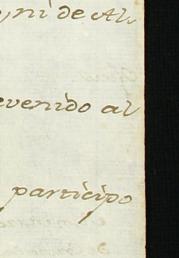 ni de Al
evenido al
participo